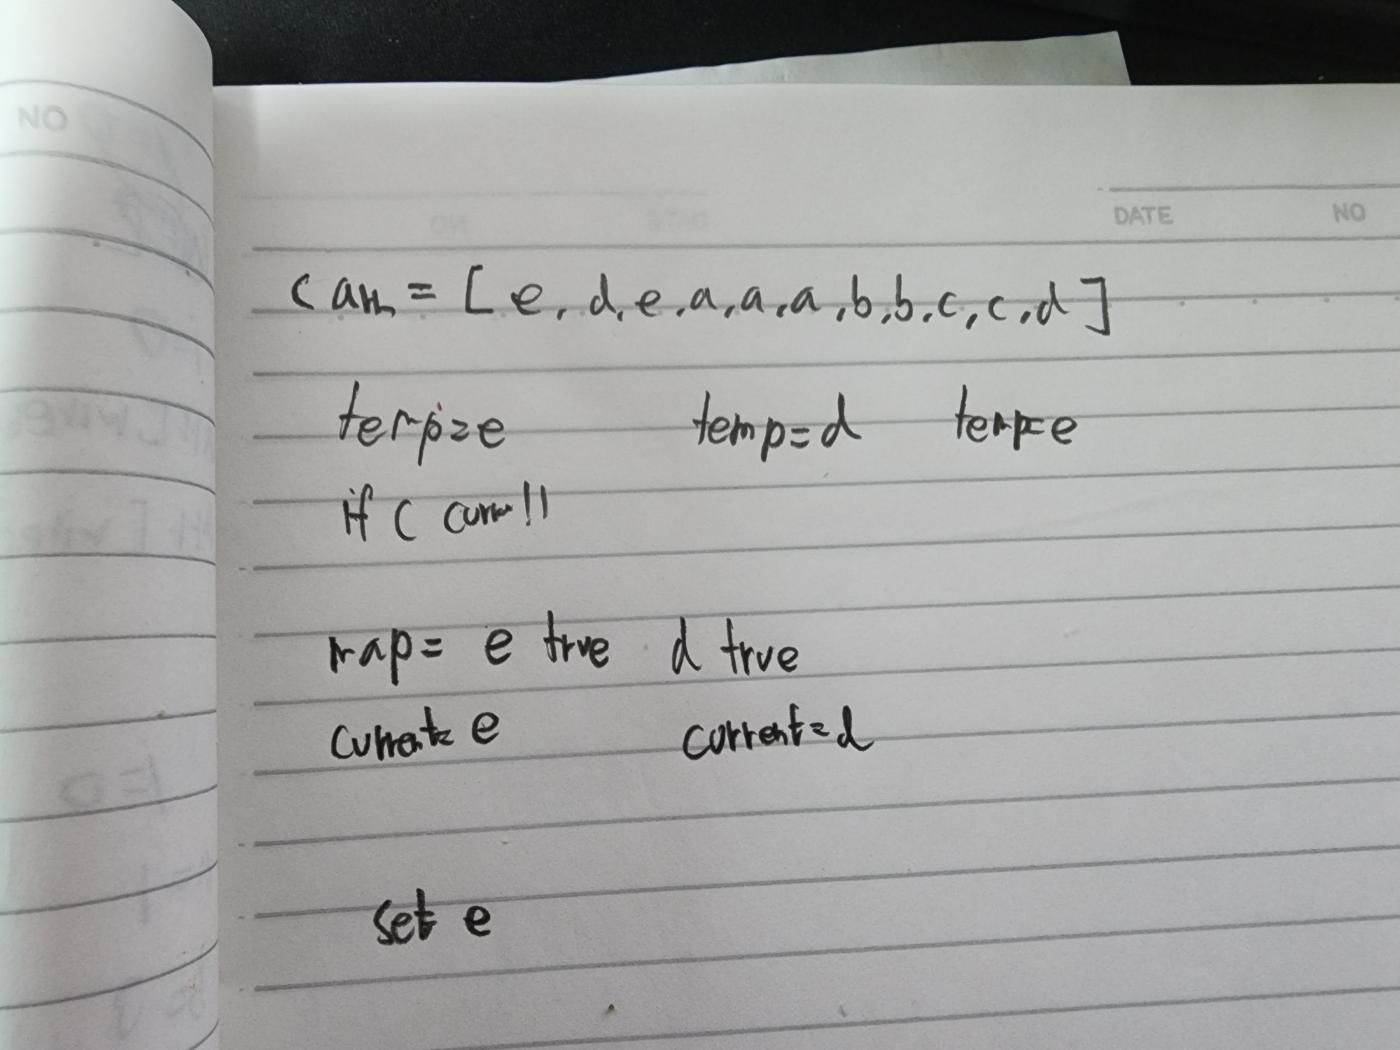 DATE NO
NO
cam = [ e, d, e, a, a, a, b, b, c, c, d ]
temp=e temp=d temp=e
if (
map= e true d true
current= e current=d
set e